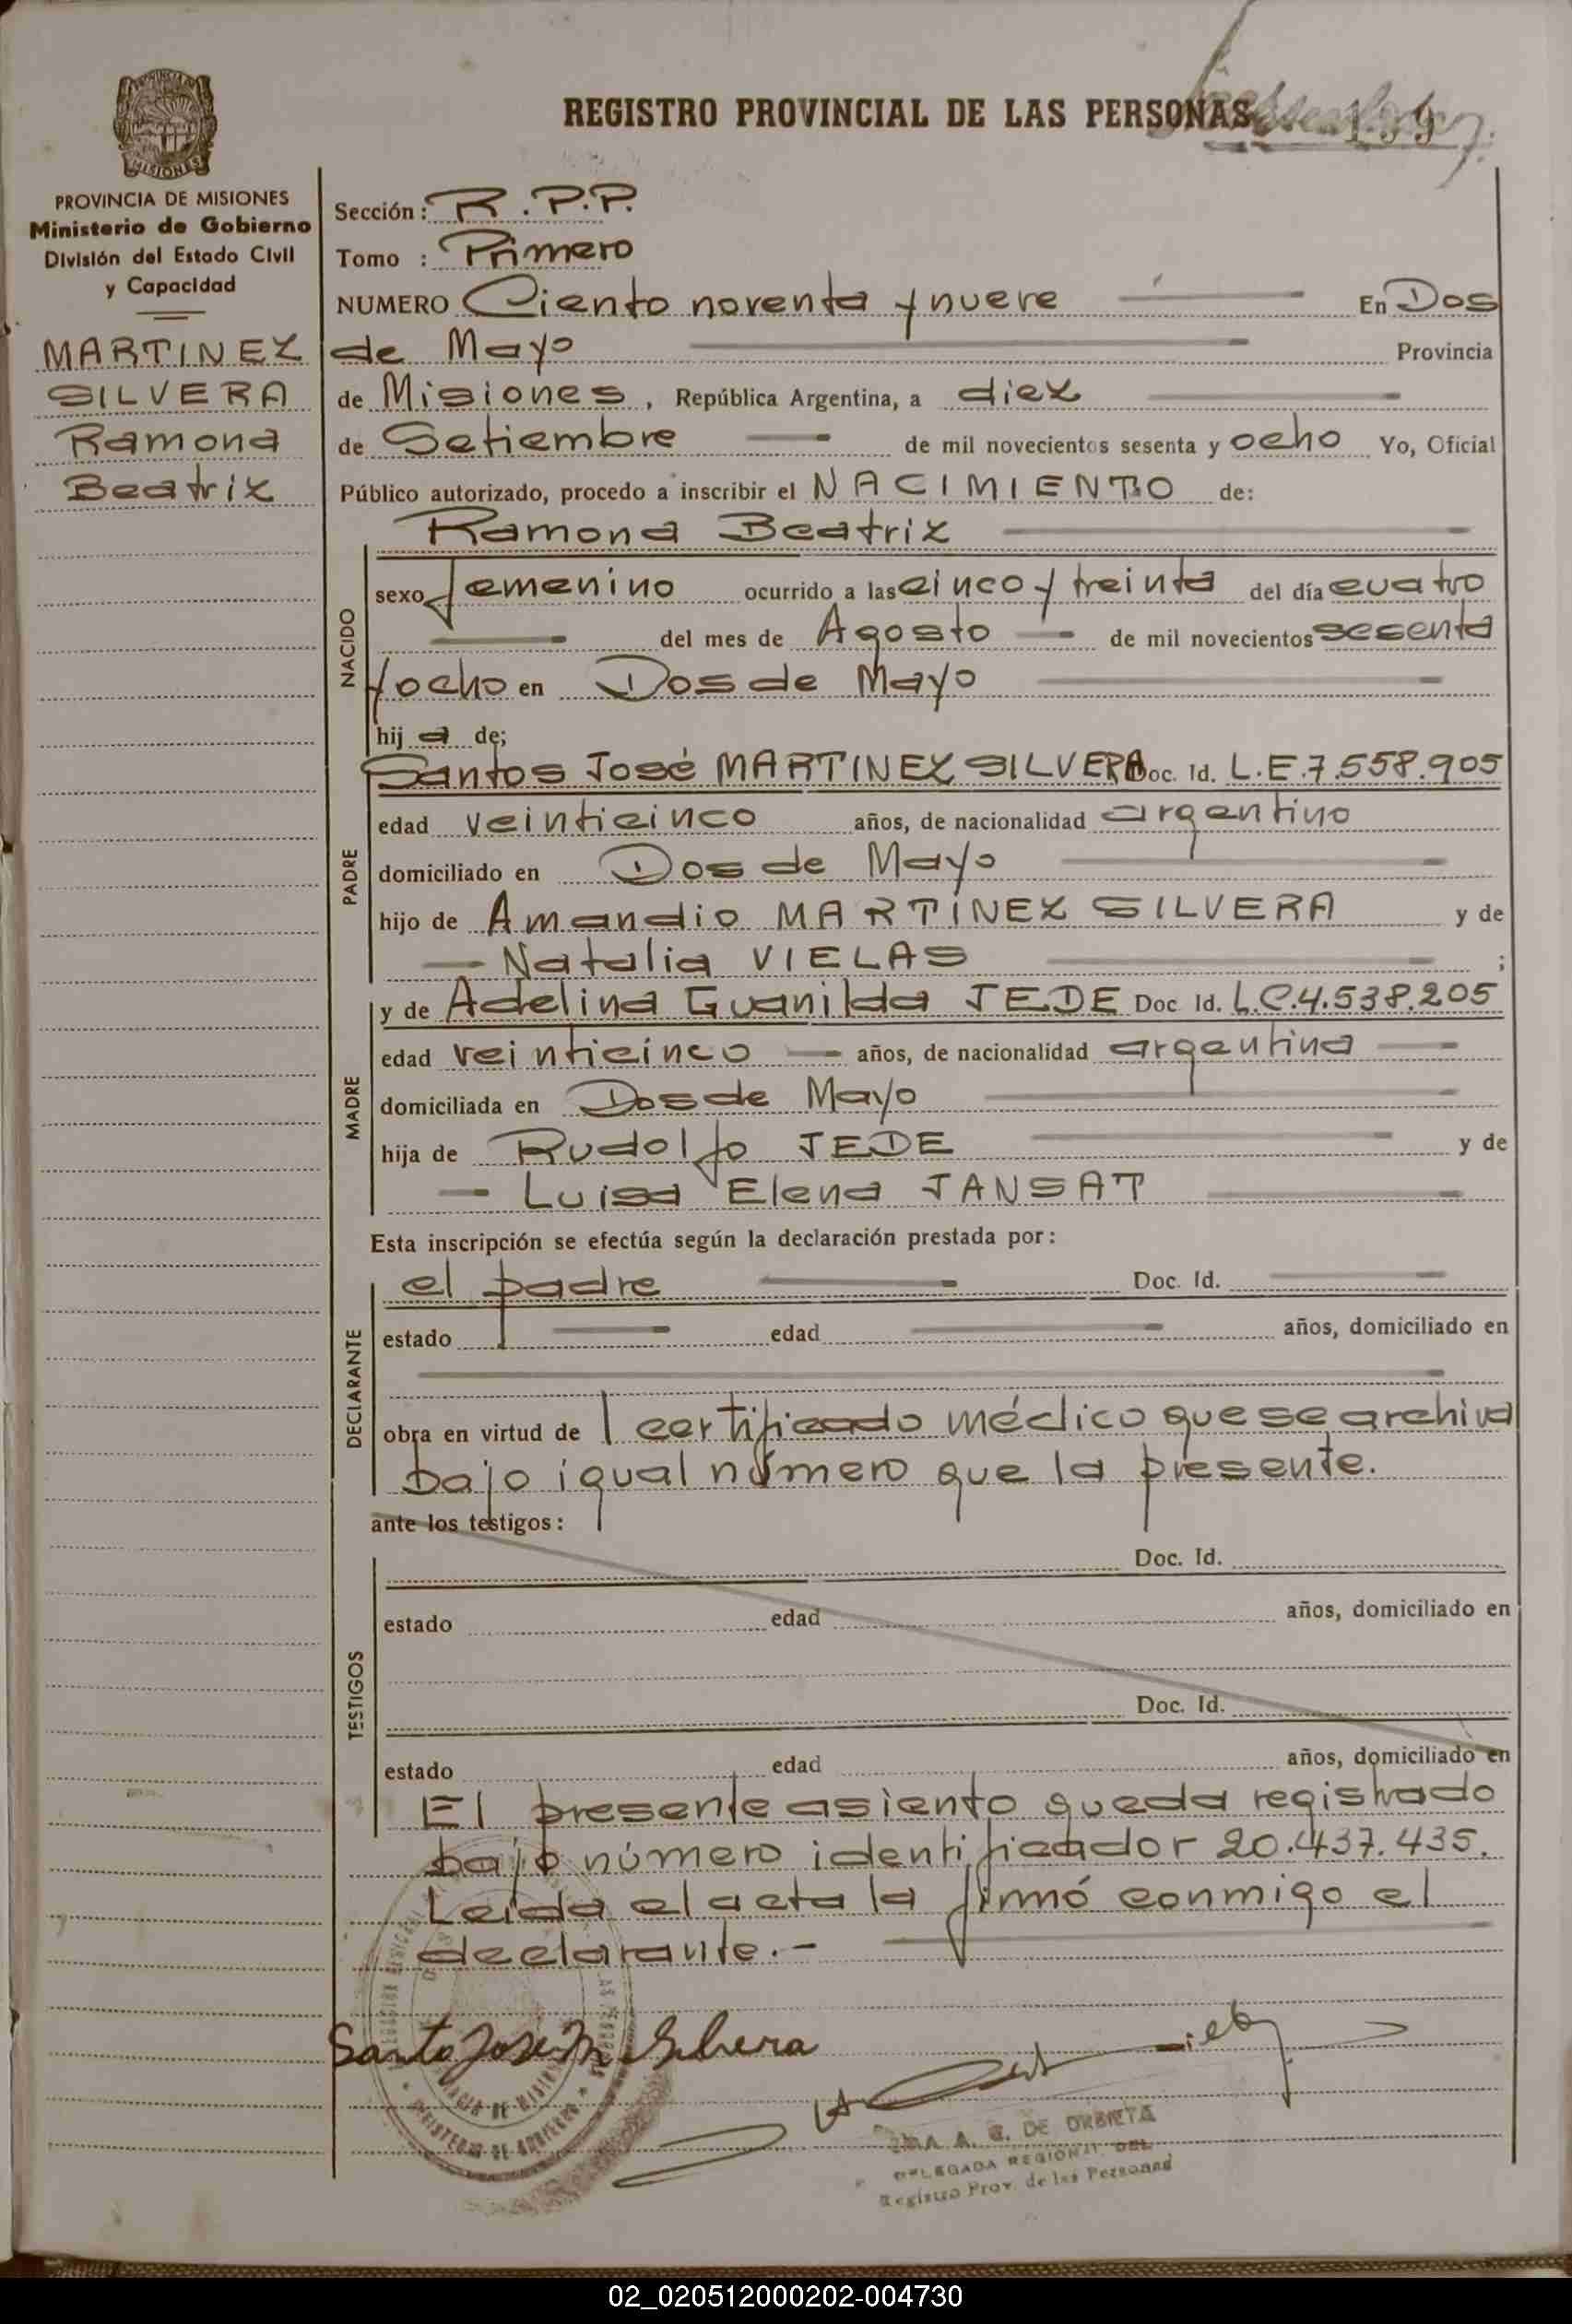 REGISTRO PROVINCIAL DE LAS PERSONAS
MISIONES
PROVINCIA DE MISIONES
Ministerio de Gobierno
División del Estado Civil
y Capacidad
MARTINEZ
SILVERA
Ramona
Beatriz
Sección: R.P.P.
Tomo : Primero
NUMERO Ciento noventa y nueve En Dos
de Mayo Provincia
de Misiones, República Argentina, a diez
de Setiembre de mil novecientos sesenta y ocho Yo, Oficial
Público autorizado, procedo a inscribir el NACIMIENTO de:
Ramona Beatriz
NACIDO
sexo femenino ocurrido a las cinco y treinta del día cuatro
del mes de Agosto de mil novecientos sesenta
y ocho en Dos de Mayo
hij a de;
PADRE
Santos José MARTINEZ SILVERA Doc. Id. L.E.7.558.905
edad veinticinco años, de nacionalidad argentino
domiciliado en Dos de Mayo
hijo de Amandio MARTINEZ SILVERA y de
Natalia VIELAS ;
MADRE
y de Adelina Guanilda JEDE Doc Id. L.C.4.538.205
edad veinticinco años, de nacionalidad argentina
domiciliada en Dos de Mayo
hija de Rudolfo JEDE y de
Luisa Elena JANSAT
Esta inscripción se efectúa según la declaración prestada por:
DECLARANTE
el padre Doc. Id.
estado edad años, domiciliado en
obra en virtud de 1 certificado médico que se archiva
bajo igual número que la presente.
ante los testigos:
TESTIGOS
Doc. Id.
estado edad años, domiciliado en
Doc. Id.
estado edad años, domiciliado en
El presente asiento queda registrado
bajo número identificador 20.437.435.
Leída el acta la firmó conmigo el
declarante.-
Santo José M Silvera
A. G. DE ORBIETA
DELEGADA REGIONAL DEL
Registro Prov. de las Personas
02_020512000202-004730